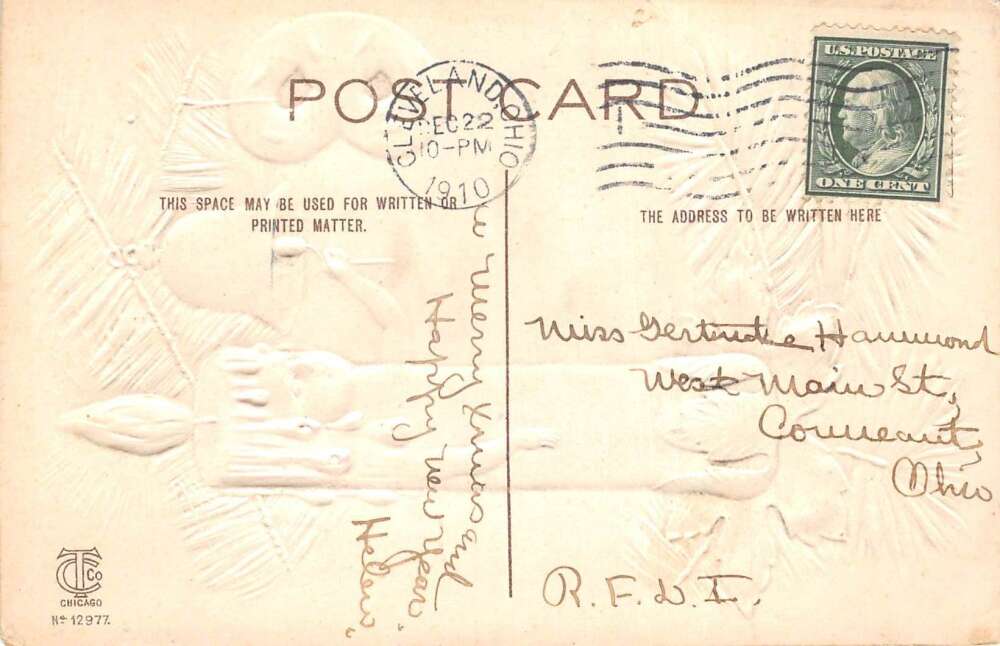 POST CARD
CLEVELAND, OHIO
DEC 22
10-PM
1910
U.S. POSTAGE
ONE CENT
THIS SPACE MAY BE USED FOR WRITTEN OR
PRINTED MATTER.
THE ADDRESS TO BE WRITTEN HERE
Merry Xmas and
Happy New Year"
Helen"
Miss Gertrude Hammond
West Main St,
Conneaut,
Ohio
R.F.D. I.
CTCo
CHICAGO
No 12977.